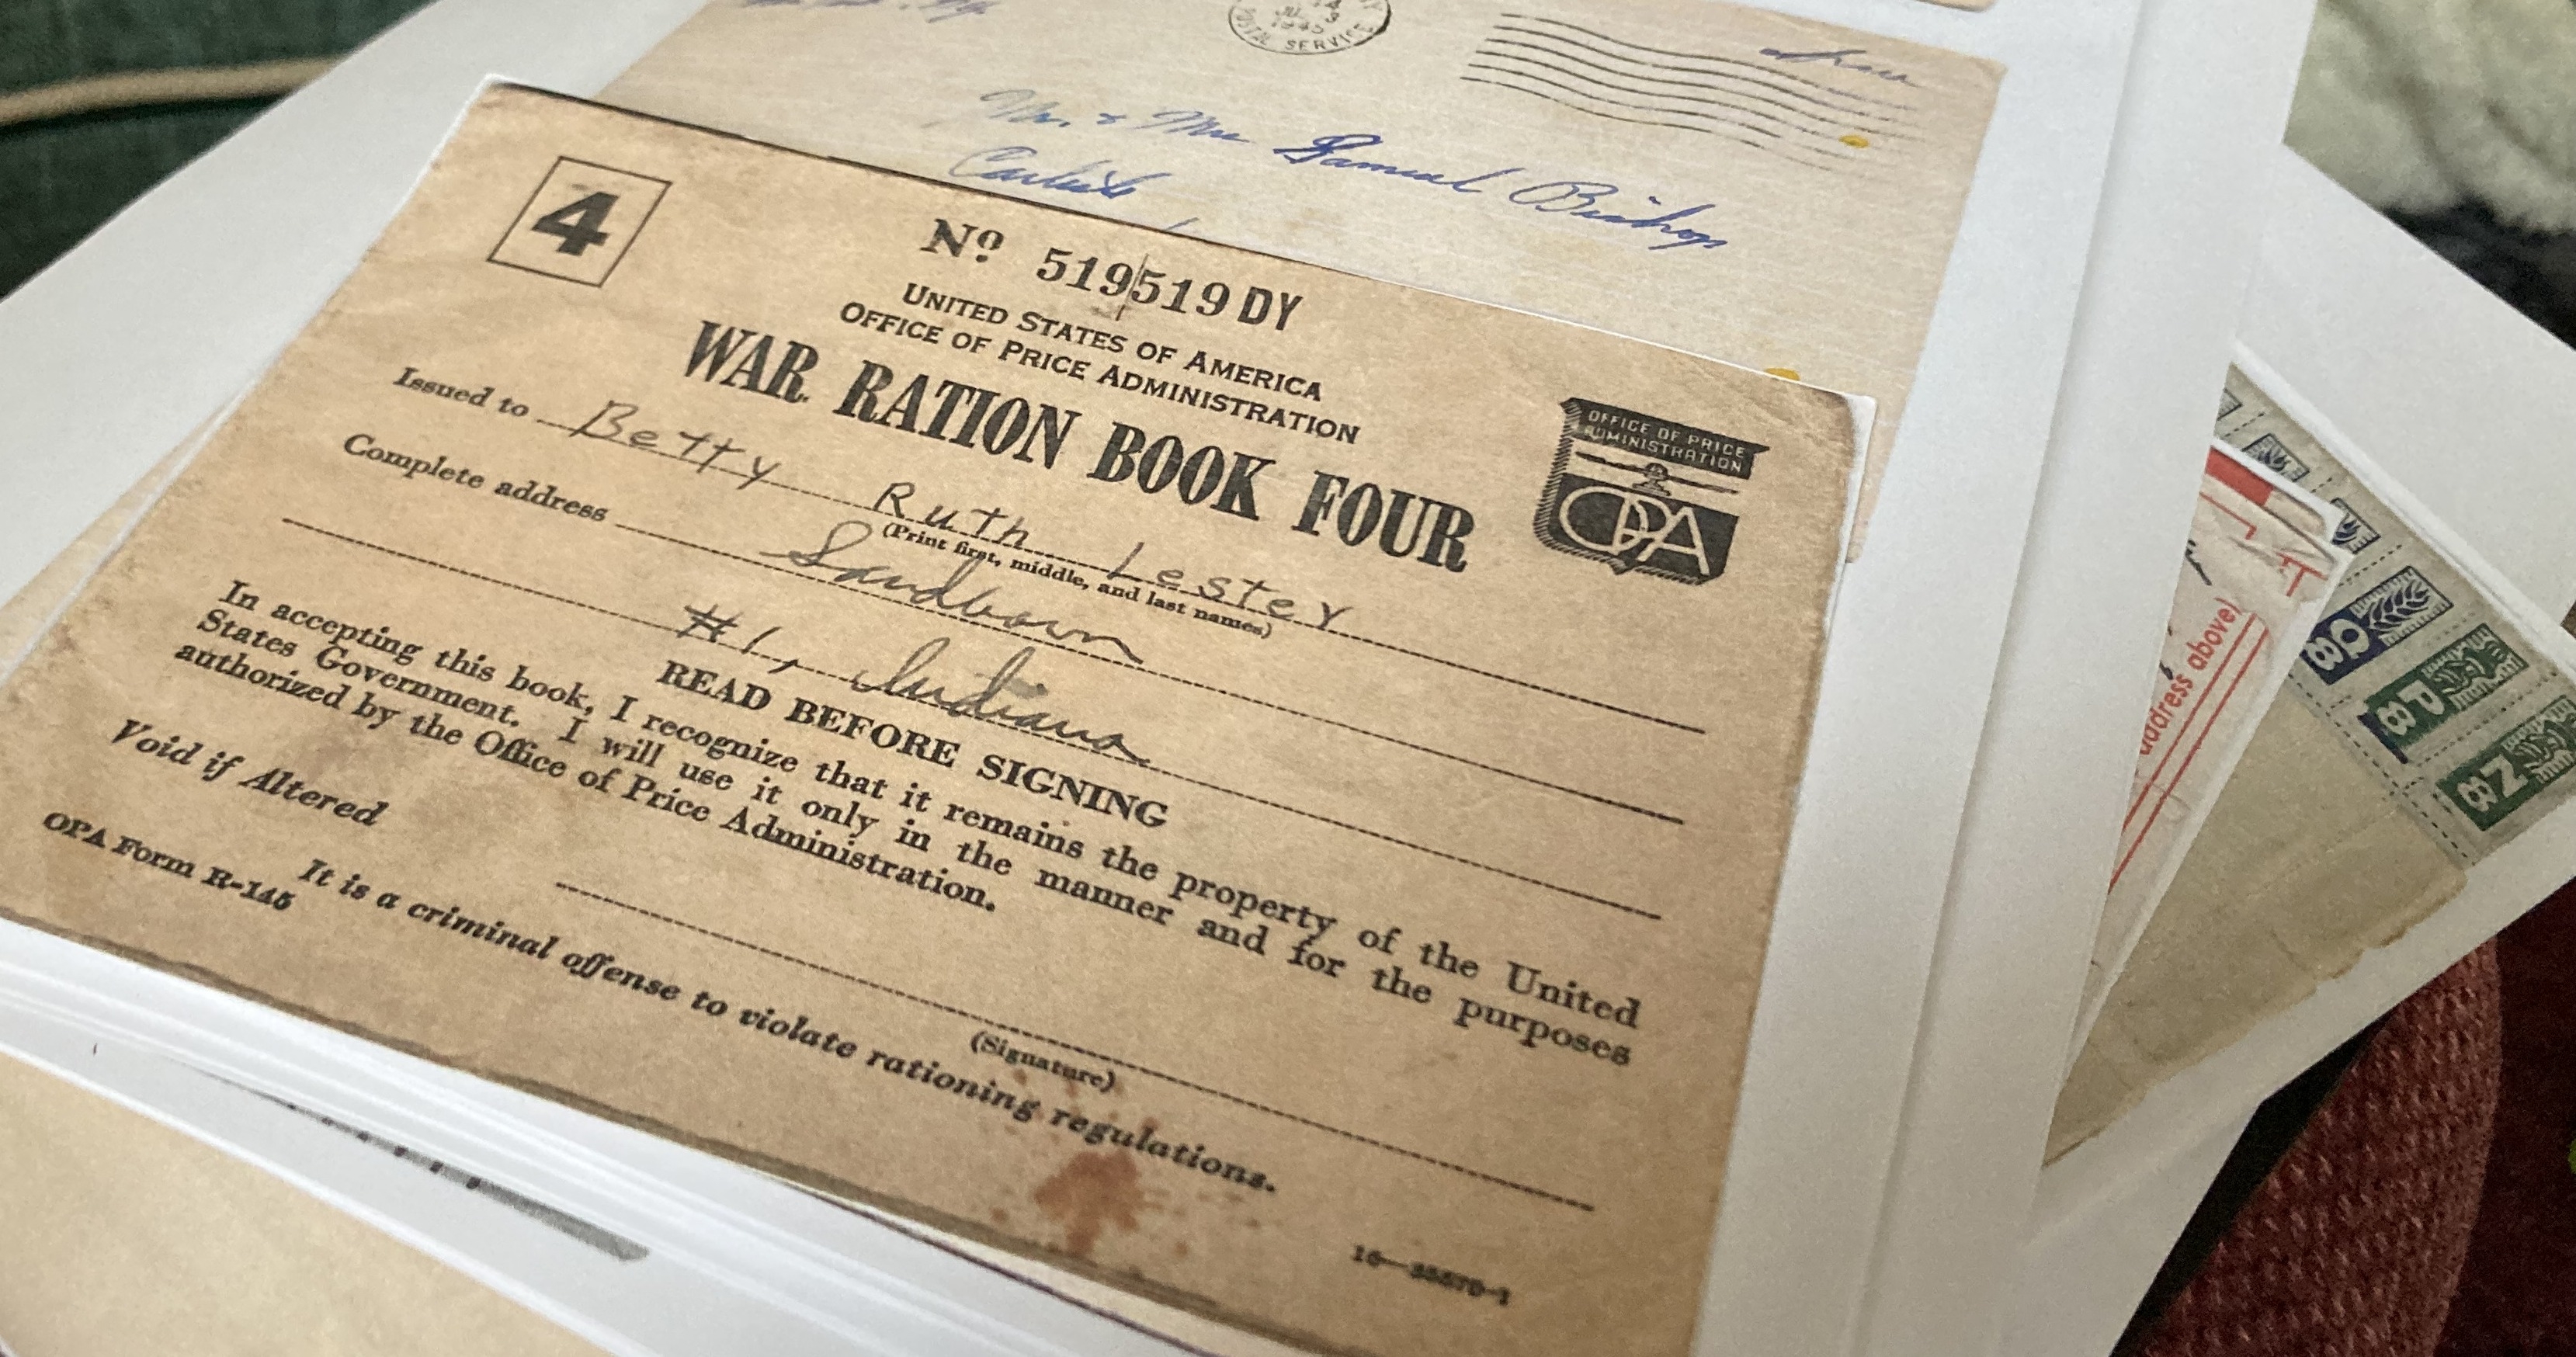 POSTAL SERVICE
Mr. & Mrs Samuel Bishop
Carlisle
4
No 519519 DY
UNITED STATES OF AMERICA
OFFICE OF PRICE ADMINISTRATION
WAR RATION BOOK FOUR
OFFICE OF PRICE
ADMINISTRATION
OPA
Issued to Betty Ruth Lester
(Print first, middle, and last names)
Complete address Sandborn
#1, Indiana
READ BEFORE SIGNING
In accepting this book, I recognize that it remains the property of the United
States Government. I will use it only in the manner and for the purposes
authorized by the Office of Price Administration.
Void if Altered
(Signature)
It is a criminal offense to violate rationing regulations.
OPA Form R-145
16—35570-1
address above)
8 Q
8 P
8 N